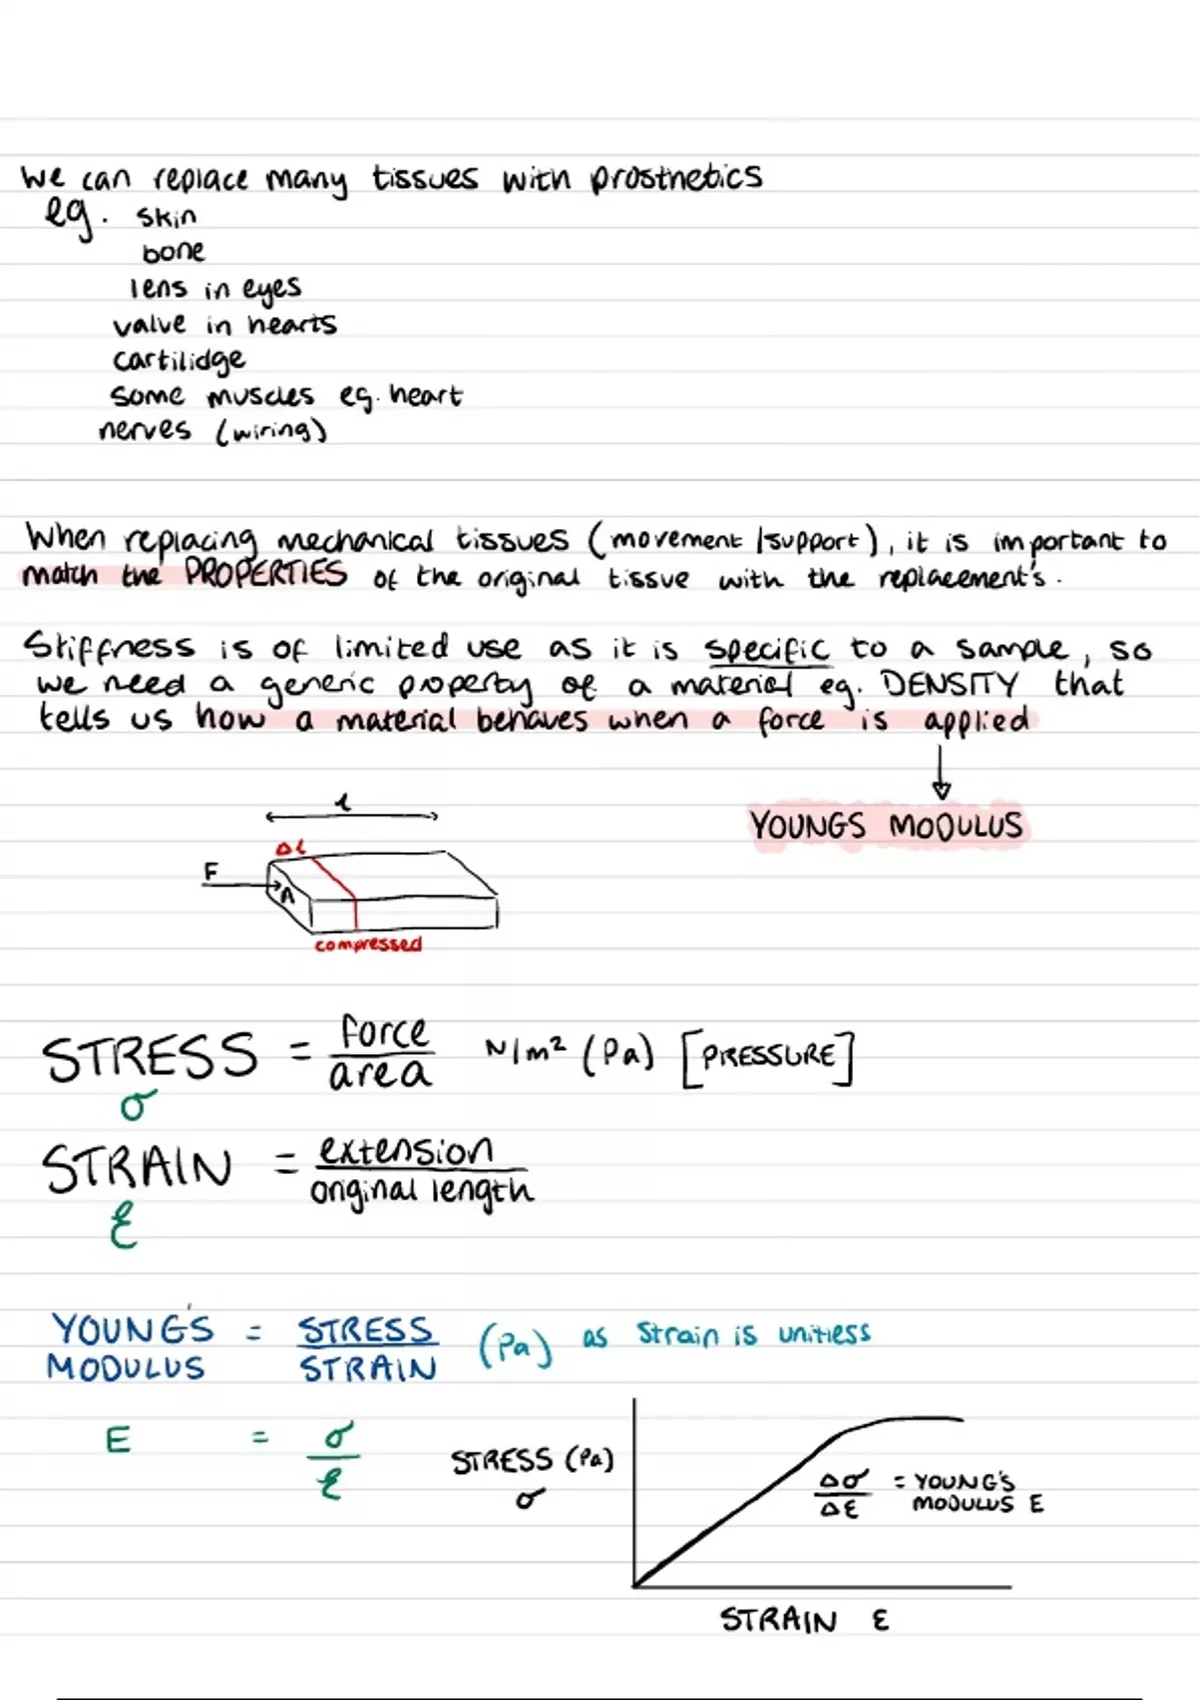 We can replace many tissues with prosthetics
eg. skin
bone
lens in eyes
valve in hearts
cartilidge
some muscles eg. heart
nerves (wiring)
When replacing mechanical tissues (movement /support), it is important to
match the PROPERTIES of the original tissue with the replacement's.
Stiffness is of limited use as it is specific to a sample, so
we need a generic property of a material eg. DENSITY that
tells us how a material behaves when a force is applied
YOUNGS MODULUS
l
Δl
F
A
compressed
STRESS = force/area N/m² (Pa) [PRESSURE]
σ
STRAIN = extension/original length
ε
YOUNG'S MODULUS = STRESS/STRAIN (Pa) as strain is unitless
E = σ/ε
STRESS (Pa)
σ
Δσ/Δε = YOUNG'S MODULUS E
STRAIN ε